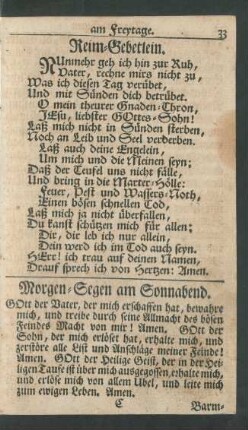 am Freytage. 33
Reim-Gebetlein.
NUnmehr geh ich hin zur Ruh,
Vater, rechne mirs nicht zu,
Was ich diesen Tag verübet,
Und mit Sünden dich betrübet.
O mein theurer Gnaden-Thron,
JEsu, liebster GOttes-Sohn!
Laß mich nicht in Sünden sterben,
Noch an Leib und Seel verderben.
Laß auch deine Engelein,
Um mich und die Meinen seyn;
Daß der Teufel uns nicht fälle,
Und bring in die Marter-Hölle:
Feuer, Pest und Wassers-Noth,
Einen bösen schnellen Tod,
Laß mich ja nicht überfallen,
Du kanst schützen mich für allen;
Dir, dir leb ich nur allein,
Dein werd ich im Tod auch seyn.
HErr! ich trau auf deinen Namen,
Drauf sprech ich von Hertzen: Amen.
Morgen-Segen am Sonnabend.
GOtt der Vater, der mich erschaffen hat, bewahre
mich, und treibe durch seine Allmacht des bösen
Feindes Macht von mir! Amen. GOtt der
Sohn, der mich erlöset hat, erhalte mich, und
zerstöre alle List und Anschläge meiner Feinde!
Amen. GOtt der Heilige Geist, der in der Hei-
ligen Taufe ist über mich ausgegossen, erhalte mich,
und erlöse mich von allem Ubel, und leite mich
zum ewigen Leben. Amen.
C Barm-